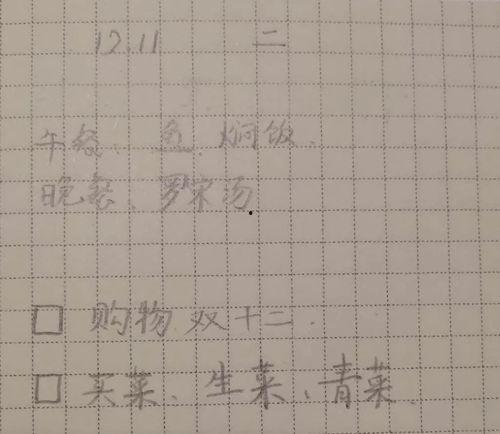 12.11 二
午餐、鱼、焖饭.
晚餐、罗宋汤
购物 双十二.
买菜、生菜、青菜